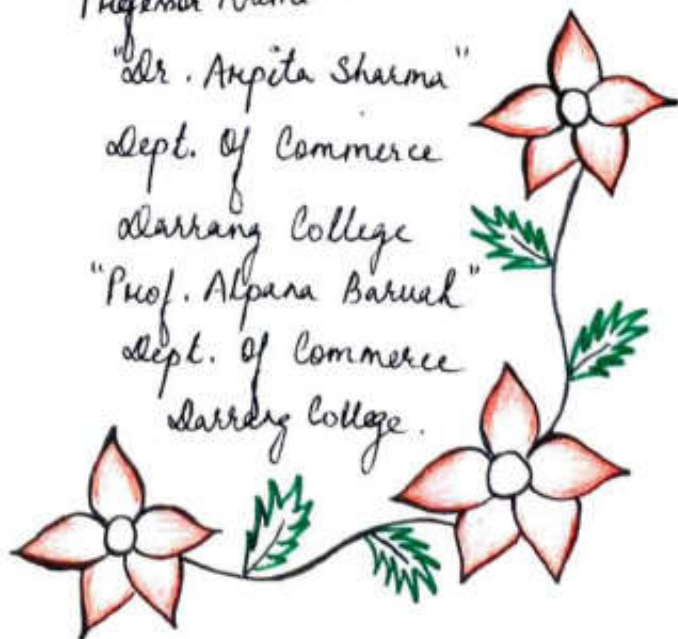 Professor Name
"Dr. Arpita Sharma"
Dept. Of Commerce
Darrang College
"Prof. Alpana Baruah"
Dept. Of Commerce
Darrang College.